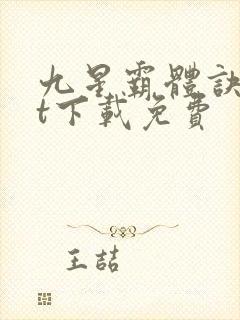 九星霸體訣
t下載免費
王喆